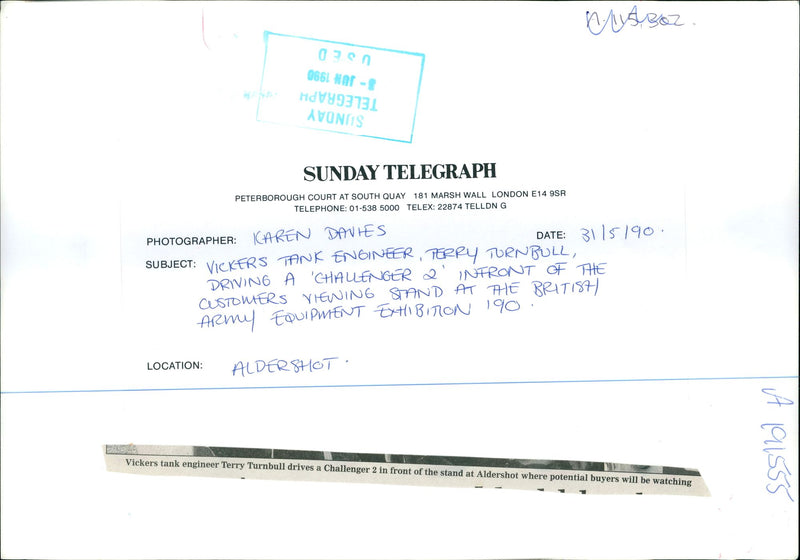 SUNDAY
TELEGRAPH
8 - JUN 1990
USED
SUNDAY TELEGRAPH
PETERBOROUGH COURT AT SOUTH QUAY 181 MARSH WALL LONDON E14 9SR
TELEPHONE: 01-538 5000 TELEX: 22874 TELLDN G
PHOTOGRAPHER: KAREN DAVIES DATE: 31/5/90.
SUBJECT: VICKERS TANK ENGINEER, TERRY TURNBULL,
DRIVING A 'CHALLENGER 2' INFRONT OF THE
CUSTOMERS VIEWING STAND AT THE BRITISH
ARMY EQUIPMENT EXHIBITION '90.
LOCATION: ALDERSHOT.
A 191555
Vickers tank engineer Terry Turnbull drives a Challenger 2 in front of the stand at Aldershot where potential buyers will be watching